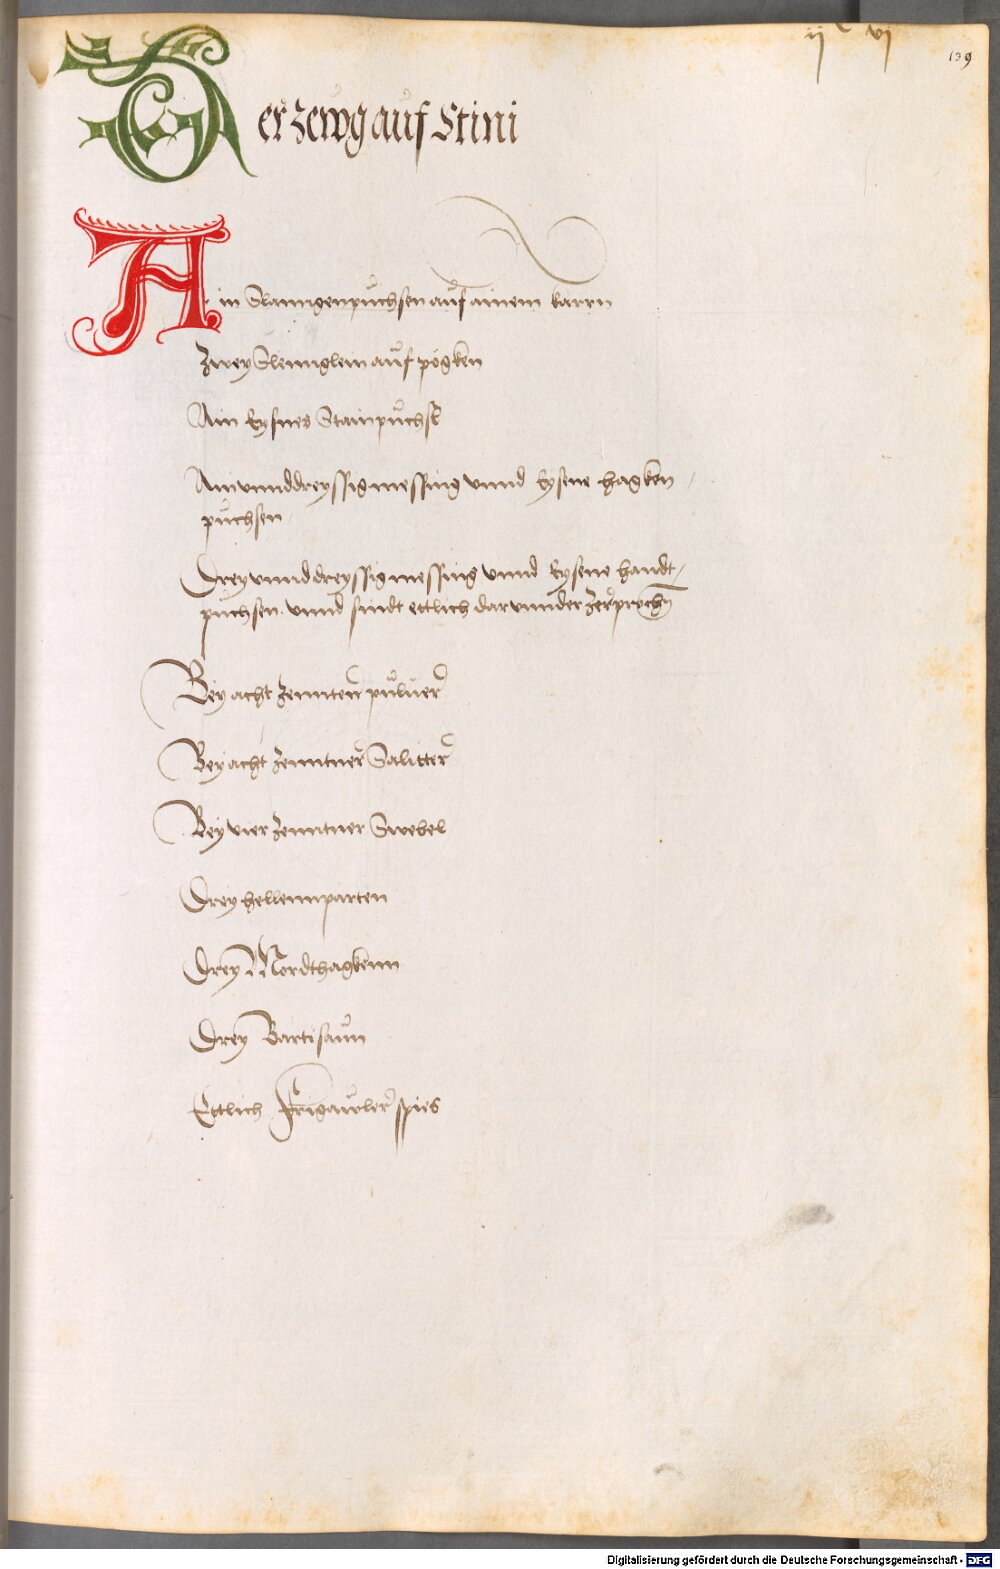 ijᶜ vj
139
Der zewg auf Stini
Ain Slanngenpůchsen aůf ainem karrn
Zwey Slennglein aůf pögken
Ain Eysnes Stainpůchsl
Ainunnddreyssig messing unnd Eysene hagken
půchsen
Dreyunnddreyssig messing unnd Eysene handt
půchsen. unnd sindt ettlich darunnder zerprochn̄
Bey acht Zenntner pulůer
Bey acht Zenntner Salitter
Bey vier Zenntner Swebel
Drey hellennparten
Drey Mordthagkenn
Drey Bartisaůn
Ettlich Frigaůler spies
Digitalisierung gefördert durch die Deutsche Forschungsgemeinschaft - DFG